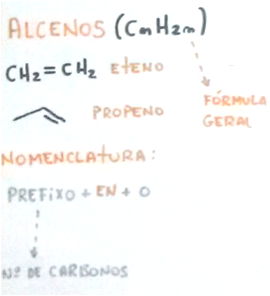 ALCENOS (CnH2n)
CH2=CH2 ETENO
PROPENO
FÓRMULA
GERAL
NOMENCLATURA:
PREFIXO + EN + O
Nº DE CARBONOS